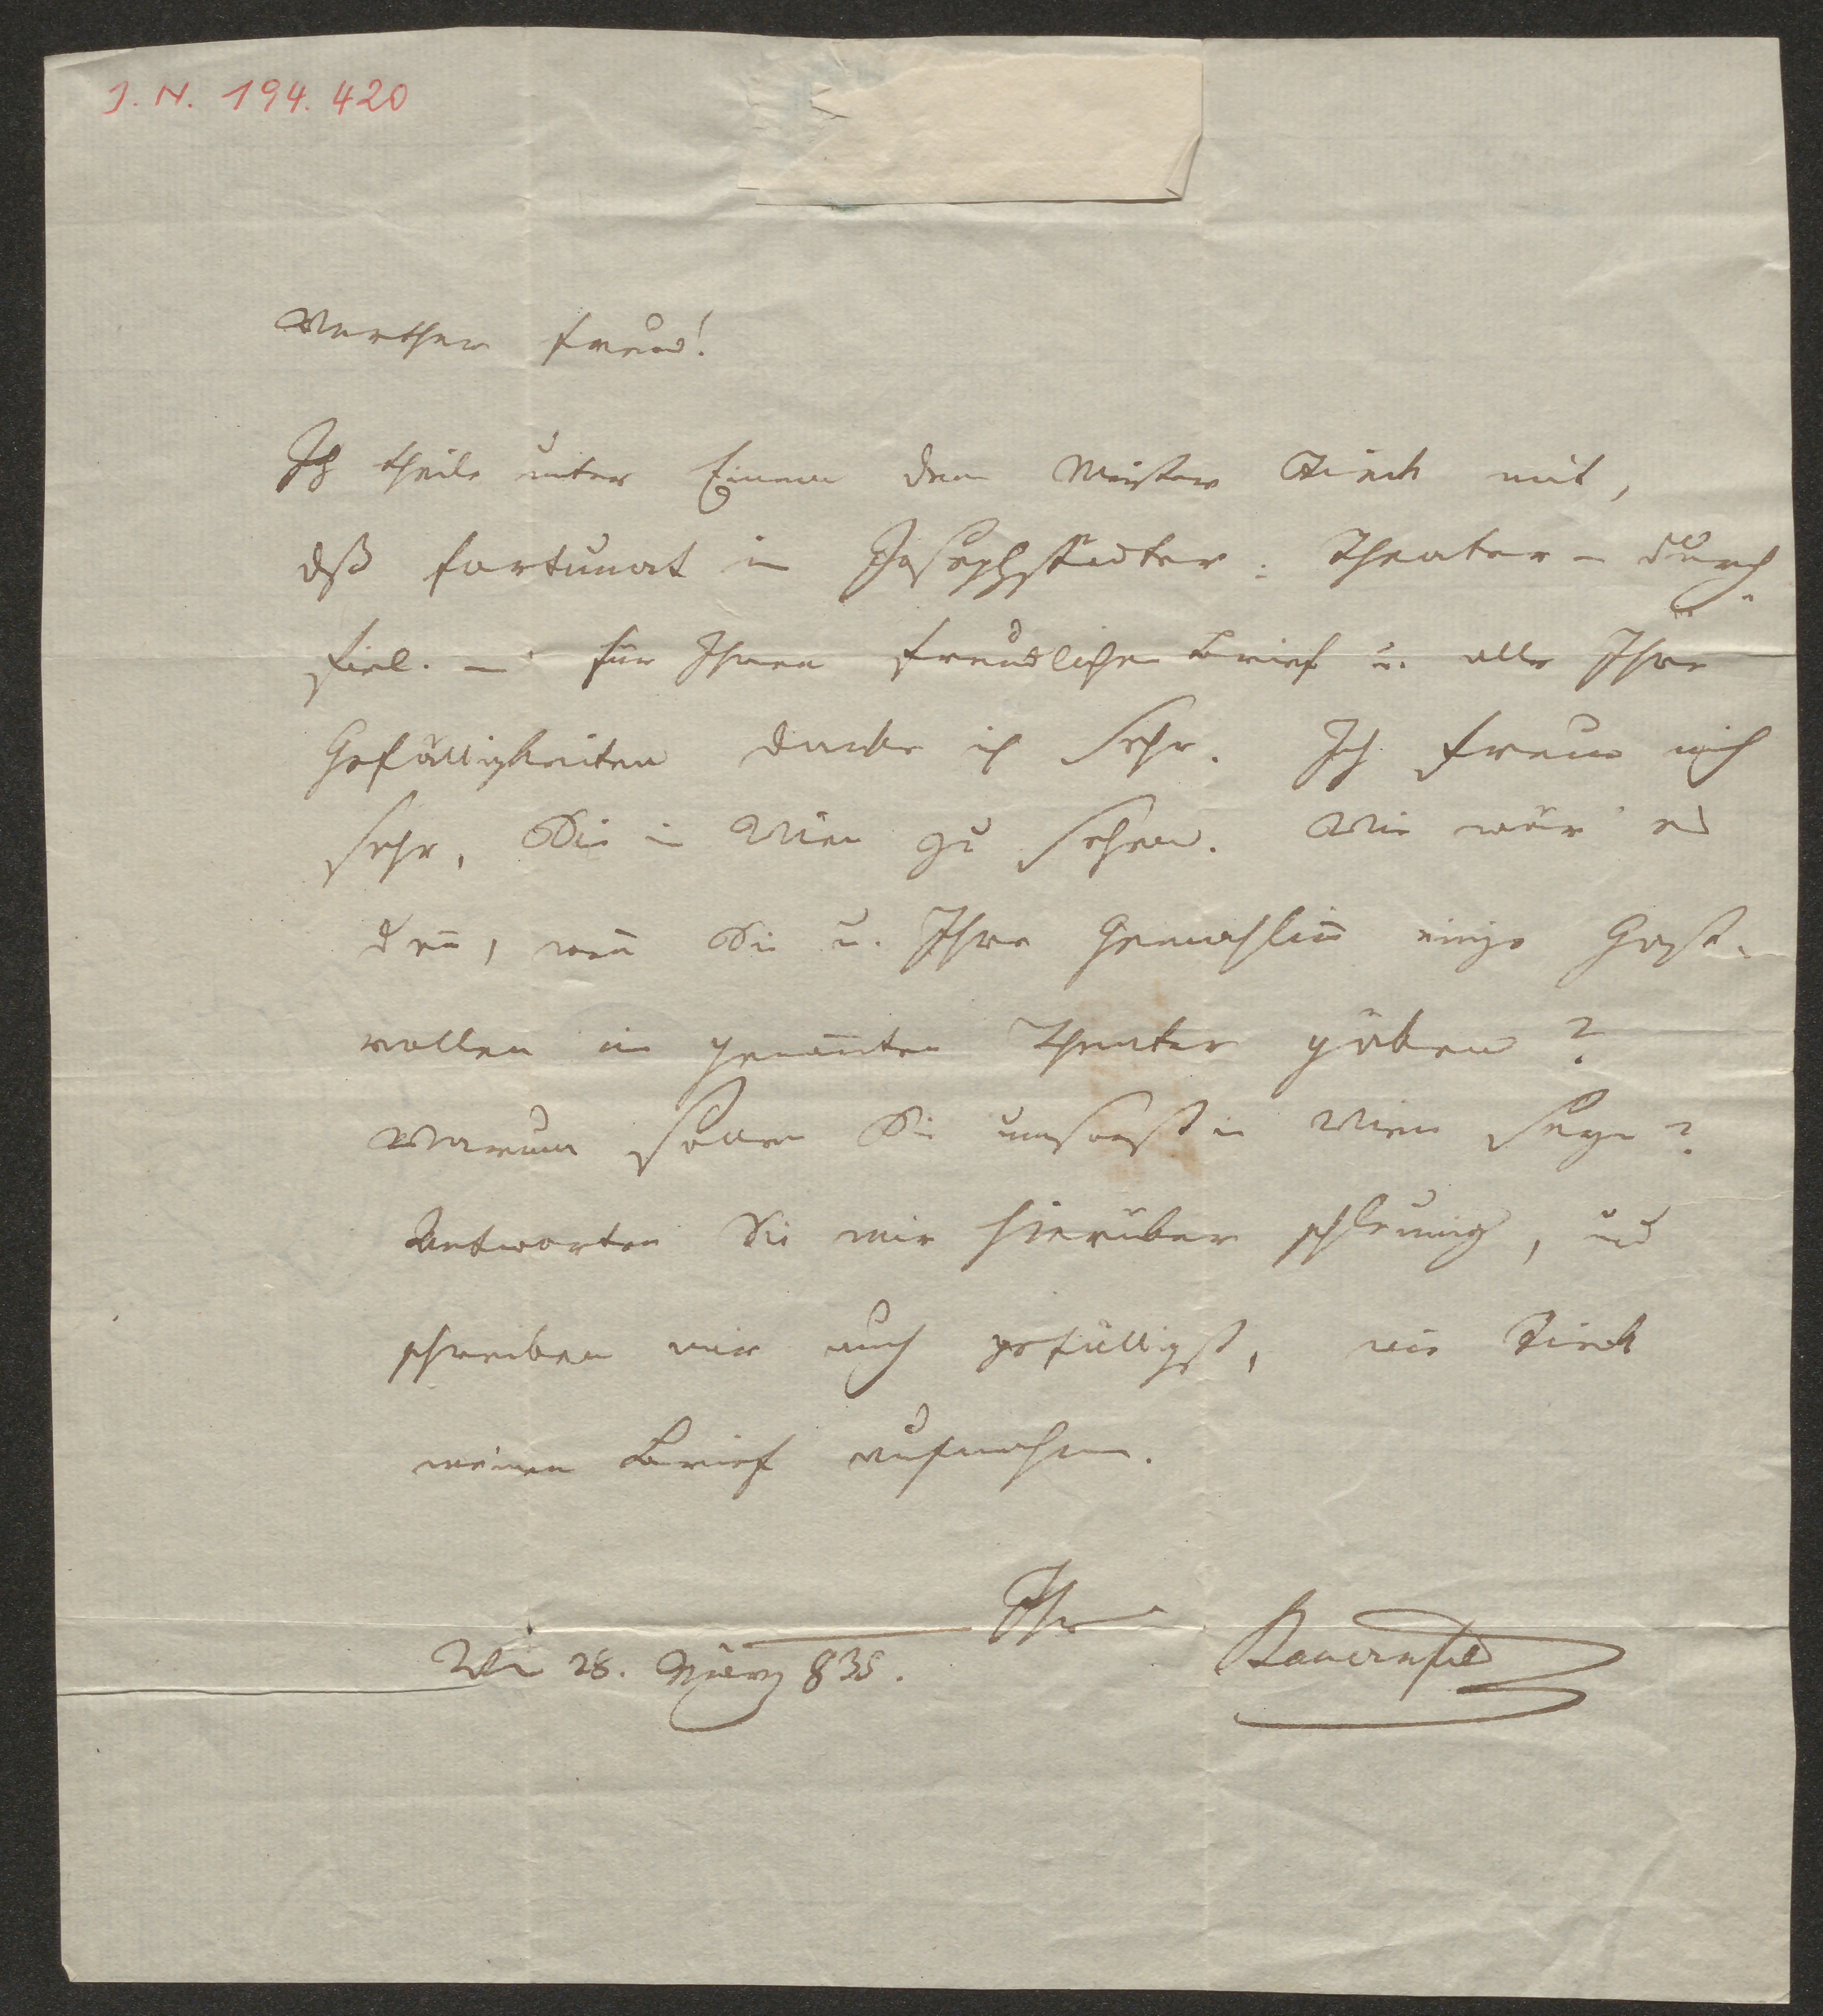 J. N. 194.420
Werther Freund!
Ich theile unter Einem dem Meister Tieck mit,
dß Fortunat im Josephstädter-Theater – durch-
fiel. – Für Ihren freundlichen Brief u. alle Ihre
Gefälligkeiten danke ich sehr. Ich freue mich
sehr, Sie in Wien zu sehen. Wie wär' es
den̄, wen̄ Sie u. Ihre Gemahlin̄ einige Gast-
rollen im genan̄ten Theater gäben?
Warum sollen Sie umsonst in Wien seyn?
Antworten Sie mir hierüber schleunig, und
schreiben mir auch gefälligst, wie Tieck
meinen Brief aufnahm.
Ihr
Bauernfeld
Wien 28. März 835.